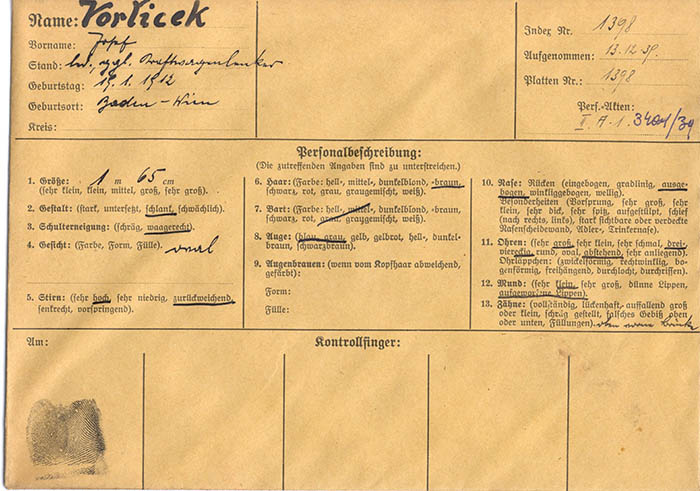 Name: Vorlicek
Vorname: Josef
Stand: led., Kraftwagenlenker
Geburtstag: 19. 1. 1912
Geburtsort: Baden - Wien
Kreis:
Index Nr. 1398
Aufgenommen: 13.12.39.
Platten Nr.: 1398
Pers.-Akten:
II A-1 3401/39
Personalbeschreibung:
(Die zutreffenden Angaben sind zu unterstreichen.)
1. Größe: 1 m 65 cm
(sehr klein, klein, mittel, groß, sehr groß).
2. Gestalt: (stark, untersetzt, schlank, schwächlich).
3. Schulterneigung: (schräg, waagerecht).
4. Gesicht: (Farbe, Form, Fülle). oval
5. Stirn: (sehr hoch, sehr niedrig, zurückweichend,
senkrecht, vorspringend).
6. Haar: (Farbe: hell-, mittel-, dunkelblond, -braun,
schwarz, rot, grau, graugemischt, weiß).
7. Bart: (Farbe: hell-, mittel-, dunkelblond, -braun,
schwarz, rot, grau, graugemischt, weiß).
8. Auge: (blau, grau, gelb, gelbrot, hell-, dunkel-
braun, schwarzbraun).
9. Augenbrauen: (wenn vom Kopfhaar abweichend,
gefärbt):
Form:
Fülle:
10. Nase: Rücken (eingebogen, gradlinig, ausge-
bogen, winkliggebogen, wellig).
Besonderheiten (Vorsprung, sehr groß, sehr
klein, sehr dick, sehr spitz, aufgestülpt, schief
(nach rechts, links), stark sichtbare oder verdeckte
Nasenscheidewand, Adler-, Trinkernase).
11. Ohren: (sehr groß, sehr klein, sehr schmal, drei-
viereckig, rund, oval, abstehend, sehr anliegend).
Ohrläppchen: (zwickelförmig, rechtwinklig, bo-
genförmig, freihängend, durchlocht, durchrissen).
12. Mund: (sehr klein, sehr groß, dünne Lippen,
aufgeworfene Lippen).
13. Zähne: (vollständig, lückenhaft, auffallend groß
oder klein, schräg gestellt, falsches Gebiß oben
oder unten, Füllungen). oben Brücke
Am:
Kontrollfinger: